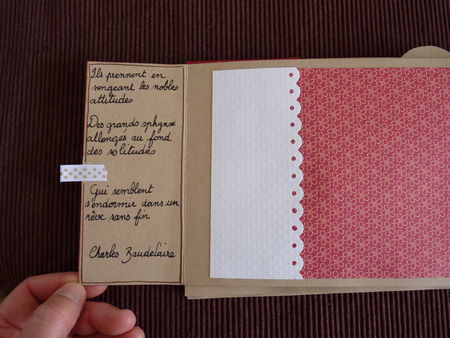 Ils prennent en
songeant les nobles
attitudes
Des grands sphynx
allongés au fond
des solitudes
Qui semblent
s'endormir dans un
rêve sans fin
Charles Baudelaire